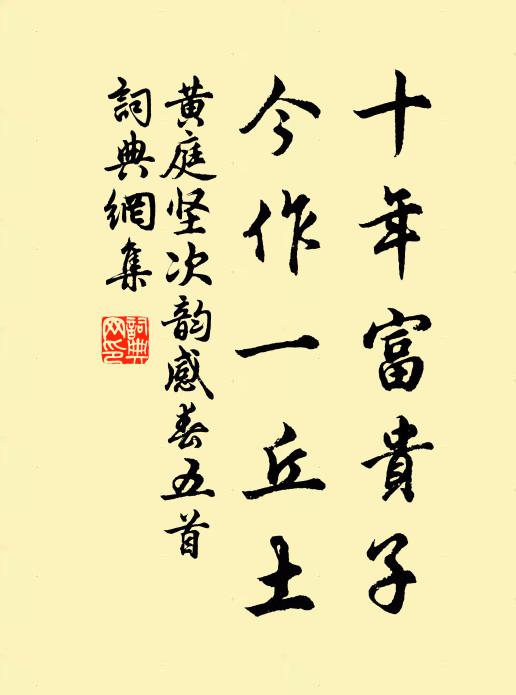 十年富貴子
今作一丘土
黄庭坚次韵感春五首
詞典網集
詞典网印